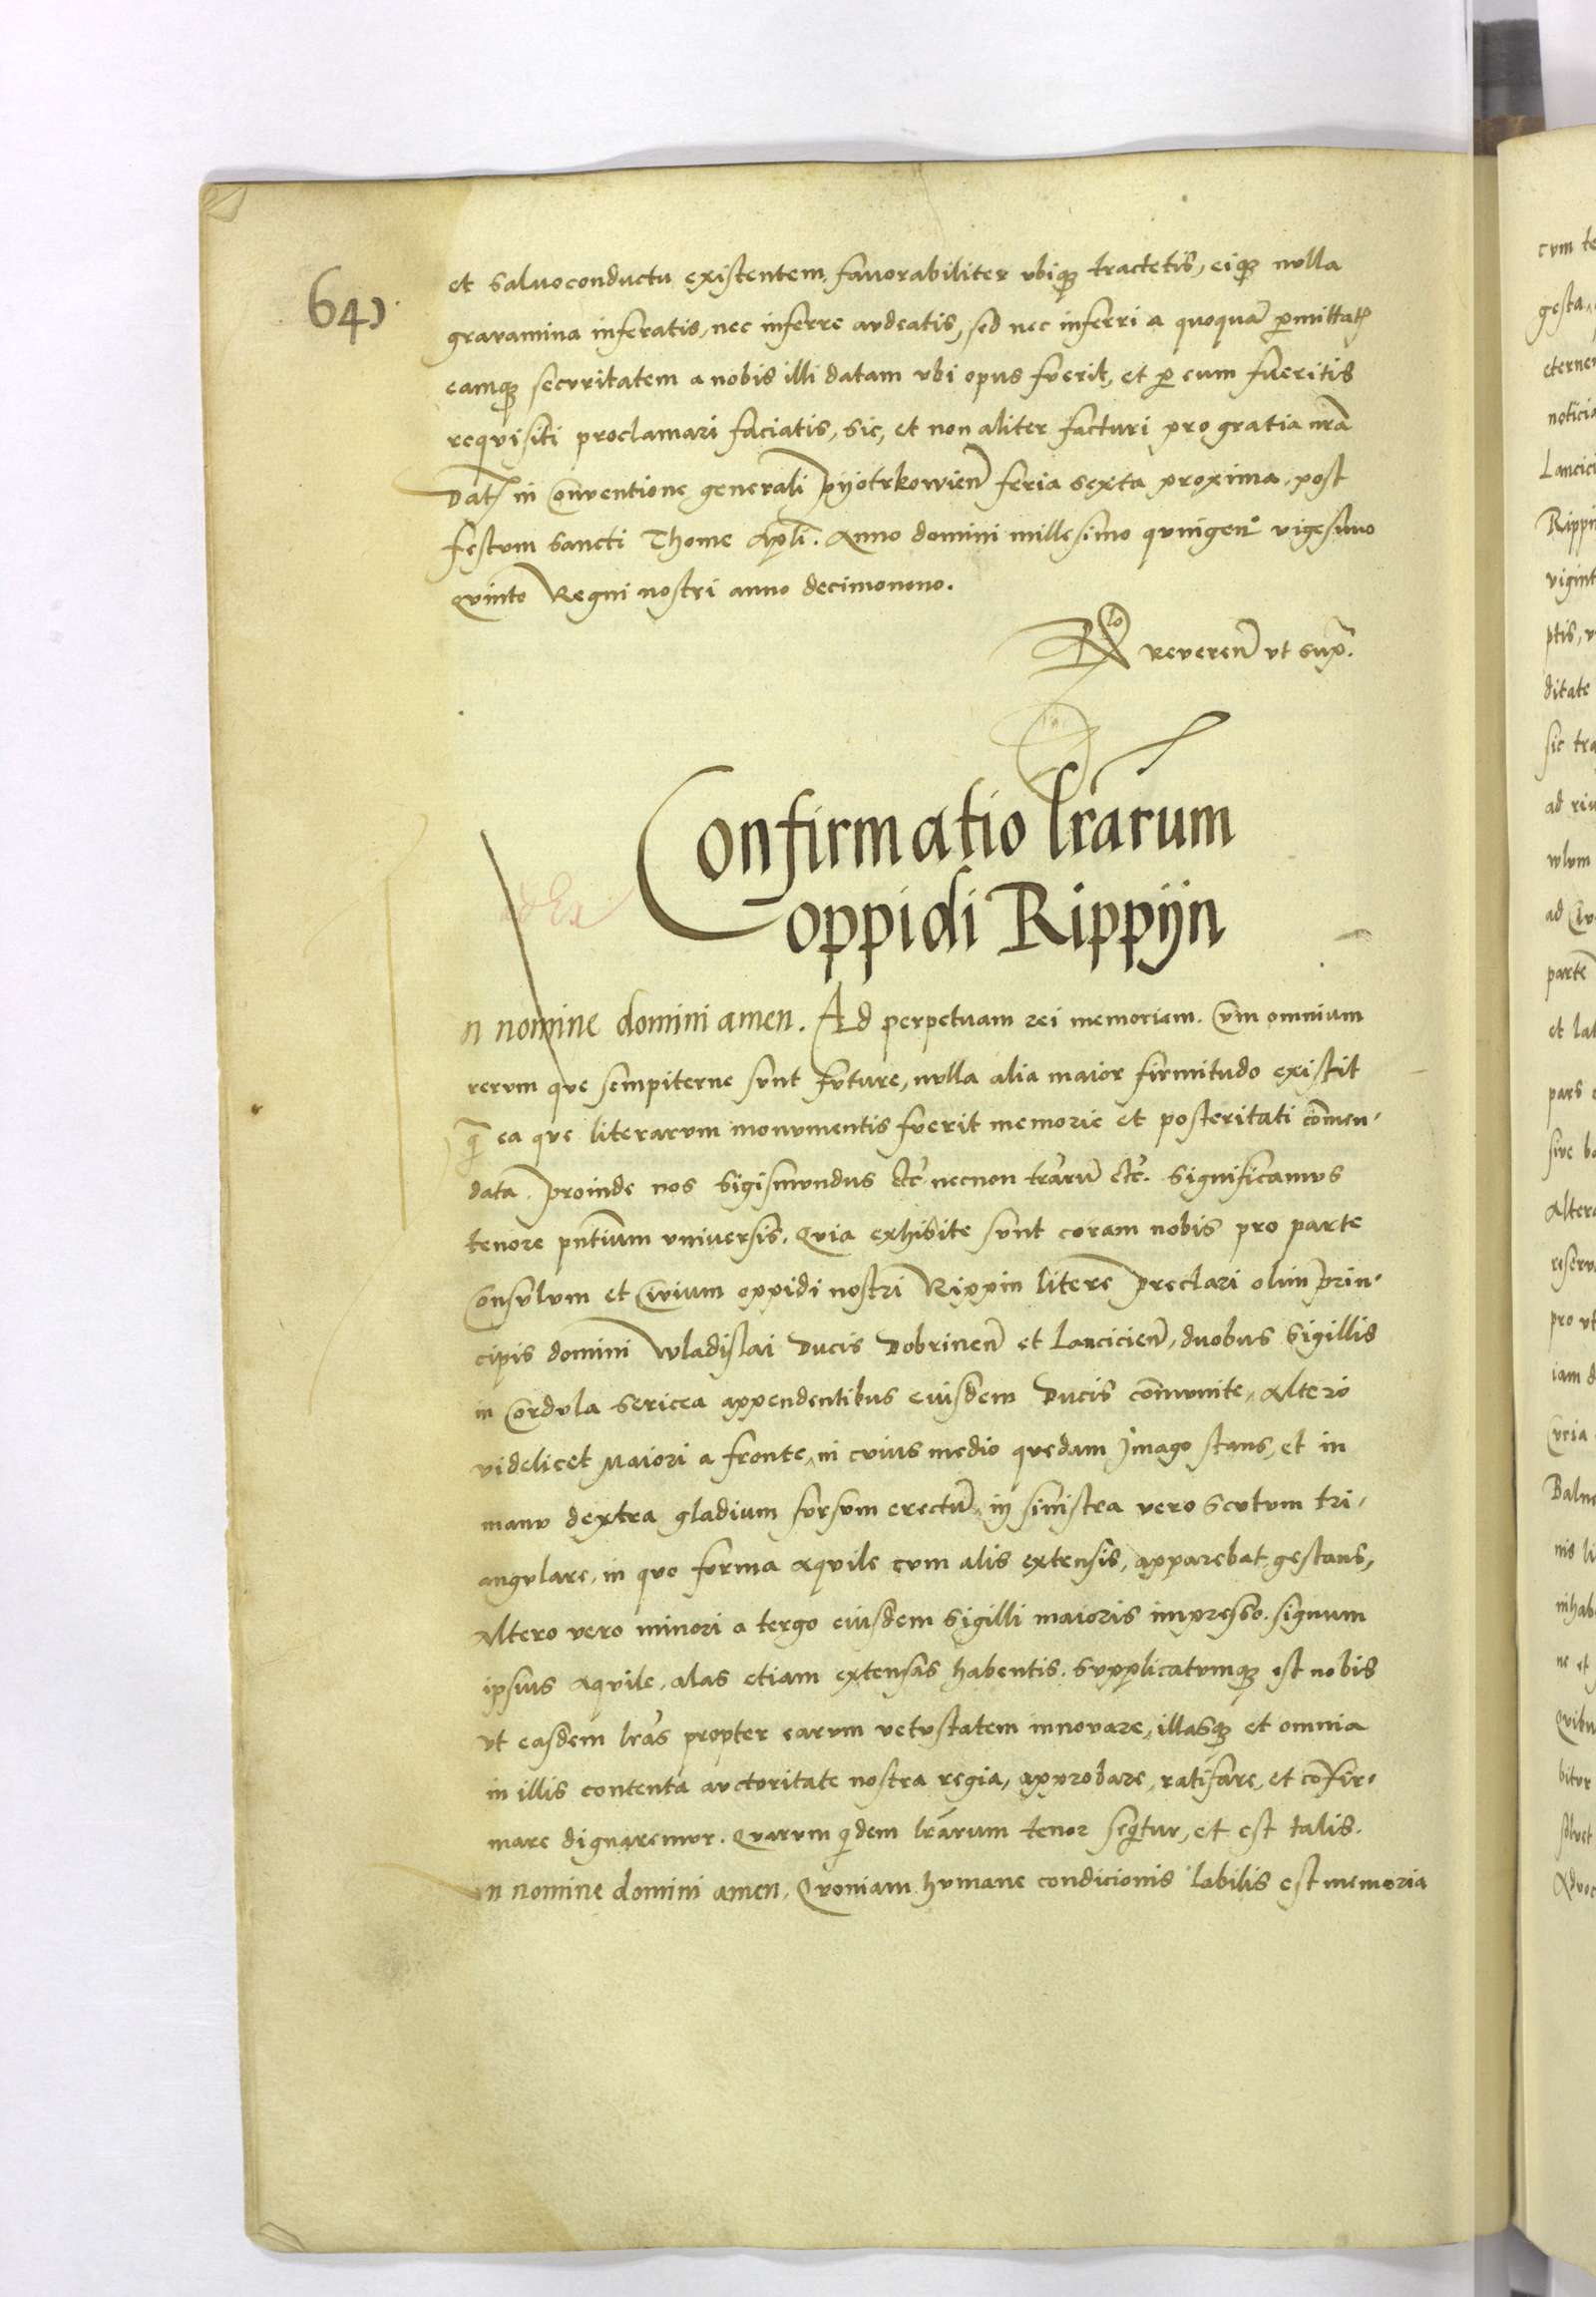 641.
et salvoconductu existentem, favorabiliter ubiq3 tractetis, eiq3 nulla
gravamina inferatis, nec inferre audeatis, sed nec inferri a quoquā p̄mittatꝭ
eamq3 securitatem a nobis illi datam ubi opus fuerit, et p̄ eum fueritis
requisiti proclamari faciatis, sic, et non aliter facturi pro gratia nr̄a
Datꝭ in Conventione generali Pyotrkowien̄ feria sexta proxima post
festum Sancti Thome Apl̄i. Anno domini millesimo quingen° vigesimo
quinto Regni nostri anno decimonono.
Rlo reveren̄ ut sup̄.
Confirmatio lrārum
oppidi Rippyn
In nomine domini amen. Ad perpetuam rei memoriam. Cum omnium
rerum que sempiterne sunt future, nulla alia maior firmitudo existit
q̄ ea que literarum monumentis fuerit memorie et posteritati com̄en-
data. proinde nos Sigismundus etc̄ necnon trārū etc̄. Significamus
tenore pn̄tium universis. Quia exhibite sunt coram nobis pro parte
Consulum et Civium oppidi nostri Rippin litere preclari olim prin-
cipis domini Wladislai Ducis Dobrinen̄ et Lancicien̄, duobus Sigillis
in Cordula sericea appendentibus eiusdem Ducis com̄unite, Altero
videlicet Maiori a fronte, in cuius medio quedam Imago stans, et in
manu dextra gladium sursum erectū, in sinistra vero Scutum tri-
angulare, in quo forma Aquile cum alis extensis, apparebat gestans,
Altero vero minori a tergo eiusdem Sigilli maioris impresso. signum
ipsius Aquile, alas etiam extensas habentis. Supplicatumq3 est nobis
ut easdem lrās propter earum vetustatem innovare, illasq3 et omnia
in illis contenta auctoritate nostra regia, approbare, ratifare, et cōfir-
mare dignaremur. Quarum q̄dem lrārum tenor seq̄tur, et est talis.
In nomine domini amen. Quoniam humane condicionis labilis est memoria